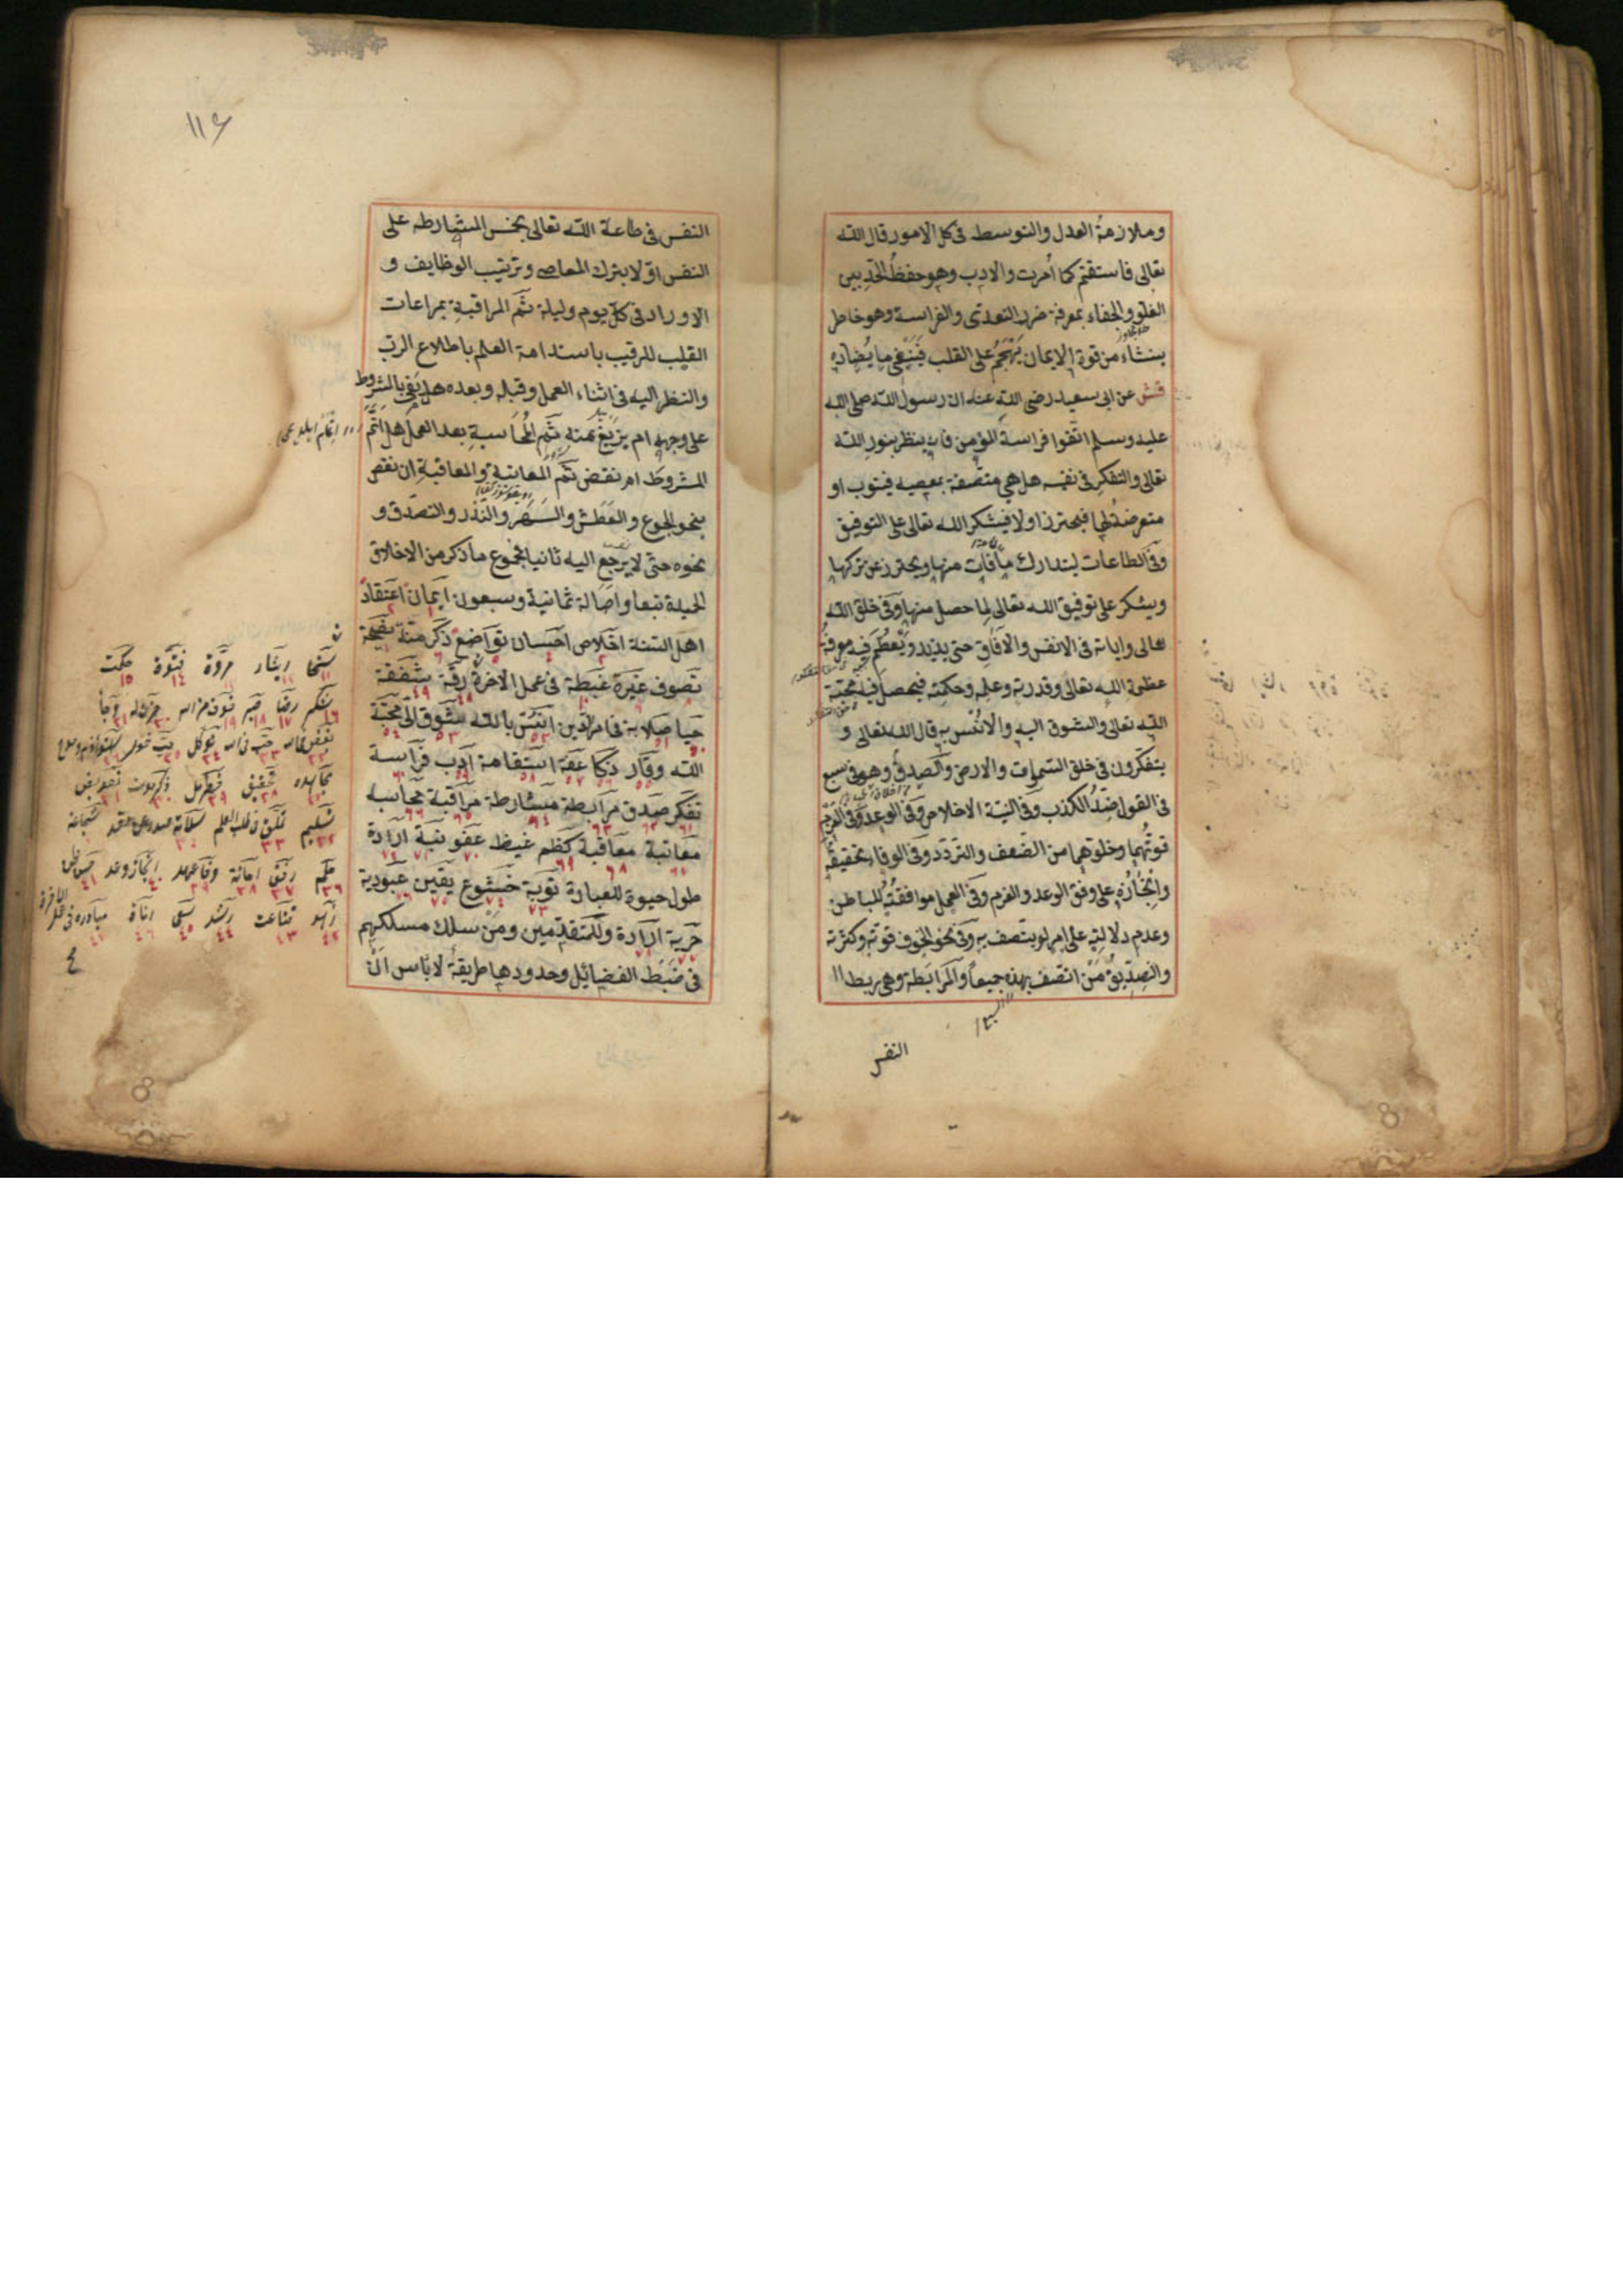 وملازمة العدل والتوسط فى كل الامور قال الله
تعالى فاستقم كما أمرت والادب وهو حفظ الحد بين
الغلو والجفاء بمعرفة ضرر التعدى والفراسة وهو خاطر
ينشاء من قوة الايمان يهجم على القلب فينفى ما يضاده
قش عن ابى سعيد رضى الله عنه ان رسول الله صلى الله
عليه وسلم اتقوا فراسة المؤمن فانه ينظر بنور الله
تعالى والتفكر فى نفسه هل هى متصفة بمعصية فيتوب او
متعرضة لها فيحترز اولا فيشكر الله تعالى على التوفيق
وفى الطاعات ليتدارك ما فات منها ويحترز عن تركها
ويشكر على توفيق الله تعالى لما حصل منها وفى خلق الله
تعالى واياته فى الانفس والآفاق حتى يزيد ويعظم فيه معرفة
عظمة الله تعالى وقدرته وعلمه وحكمته فيحصل فيه محبة
الله تعالى والشوق اليه والانس به قال الله تعالى و
يتفكرون فى خلق السموات والارض والصدق وهو فى سبع
فى القول ضد الكذب وفى النية الاخلاص وفى الوعد وفى العزم
قوتهما وخلوهما من الضعف والتردد وفى الوفاء تحقيقه
وانجازه على وفق الوعد والعزم وفى العمل موافقته للباطن
وعدم دلالته على امر لو يتصف به وفى نحو الخوف قوته وكثرته
والصديق من اتصف بهذه جميعا والمرابطة وهى ربط
النفس
١١٦
النفس فى طاعة الله تعالى بخمس المشارطة على
النفس اولا بترك المعاصى وترتيب الوظايف و
الاوراد فى كل يوم وليلة ثم المراقبة بمراعات
القلب للرقيب باستدامة العلم باطلاع الرب
والنظر اليه فى اثناء العمل وقبله وبعده هل يفى بالشروط
على وجهه ام يزيغ عنه ثم المحاسبة بعد العمل هل اتم
المشروط ام نقض ثم المعاتبة والمعاقبة ان نقص
بنحو الجوع والعطش والسهر والنذر والتصدق و
نحوه حتى لا يرجع اليه ثانيا فمجموع ما ذكر من الاخلاق
الحميدة تبعا واصالة ثمانية وسبعون ايمان اعتقاد
اهل السنة اخلاص احسان تواضع ذكر منة نصيحة
تصوف غيرة غبطة فى عمل الاخرة رقة شفقة
حيا صلابة فى امر الدين انس بالله شوق الى محبة
الله وقار ذكا عفة استقامة ادب فراسة
تفكر صدق مرابطة مشارطة مراقبة محاسبه
معاتبة معاقبة كظم غيظ عفو نية ارادة
طول حيوة للعبادة توبة خشوع يقين عبودية
حرية ارادة وللمتقدمين ومن سلك مسلكهم
فى ضبط الفضائل وحدودها طريقة لا باس ان
سخا ايثار مروة فتوة حكمت
شكر رضا صبر خوف من الله حزن رجا
مجاهده تحقيق ذكر موت تفويض
تسليم تملق فى طلب العلم شجاعة
حلم رفق امانة وفا عهد انجاز وعد حسن ظن
زهد قناعت رشد سعى اناة مبادره فى عمل الاخرة